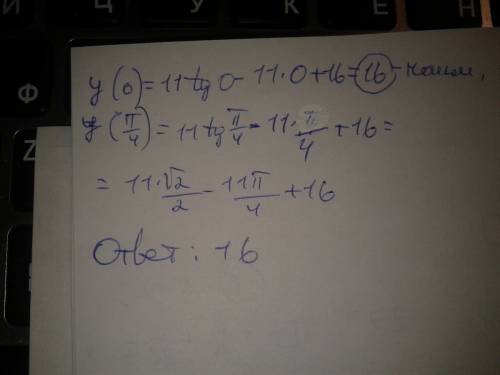 y(0) = 11 tg 0 - 11·0 + 16 = 16 -
y(π/4) = 11 tg π/4 - 11·π/4 + 16 =
= 11·√2/2 - 11π/4 + 16
Ответ: 16